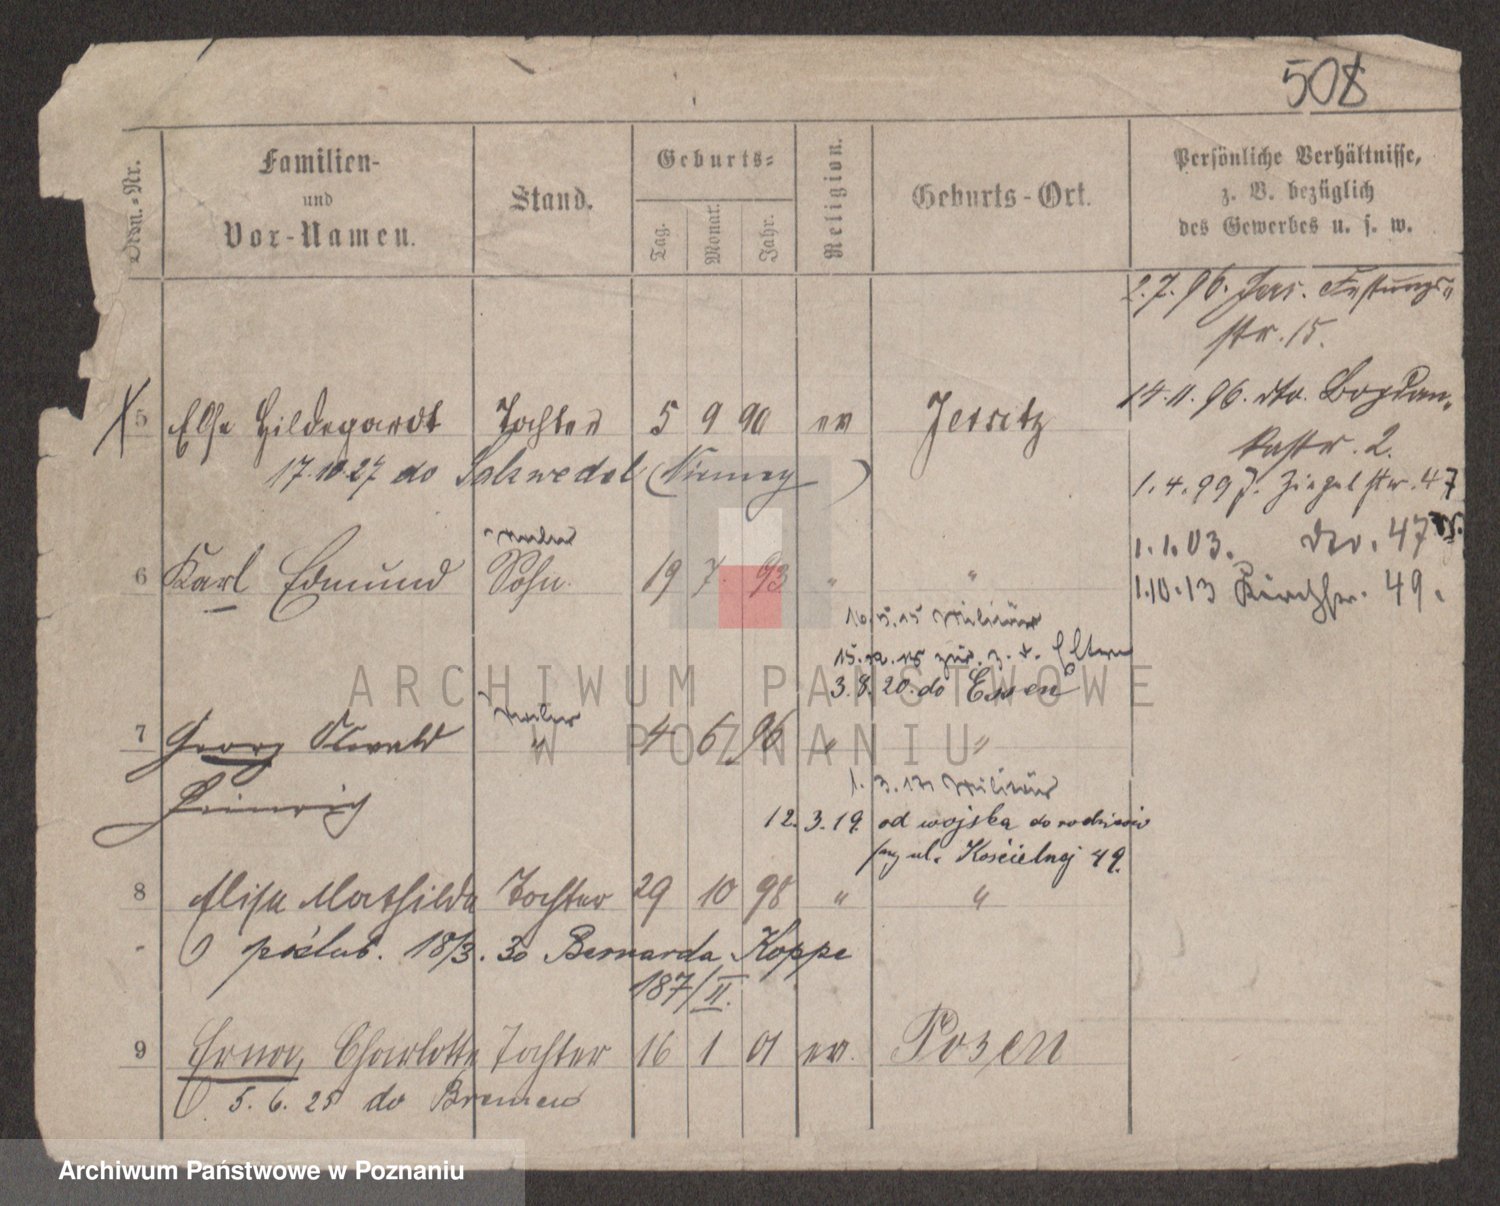 508
Ordn.-Nr.
Familien-
und
Vor-Namen.
Stand.
Geburts-
Tag.
Monat.
Jahr.
Religion.
Geburts-Ort.
Persönliche Verhältnisse,
z. B. bezüglich
des Gewerbes u. s. w.
2.7.96. Jers. Festungs-
str. 15.
14.11.96. dto. Bogdan-
kastr. 2.
5 Else Hildegardt Tochter 5 9 90 ev Jersitz
17.10.27 do Salzwedel (Niemcy)
1.4.99 J. Ziegelstr. 47
1.1.03. dto. 47
1.10.13 Kirchstr. 49.
6 Karl Edmund Sohn 19 7. 93 " "
10.5.15 Militär
15.12.15 zur. z. d. Eltern
3.8.20. do Essen
7 Georg Oswald " 4 6 96 " "
Heinrich
Militär
12.3.19. od wojska do rodziców
ul. Kościelnej 49.
8 Elisa Mathilda Tochter 29 10 98 " "
poślub. 18/3. 30 Bernarda Koppe
187/II.
9 Erna, Charlotte Tochter 16 1 01 ev. Posen
5.6.25 do Bremen
ARCHIWUM PAŃSTWOWE
W POZNANIU
Archiwum Państwowe w Poznaniu